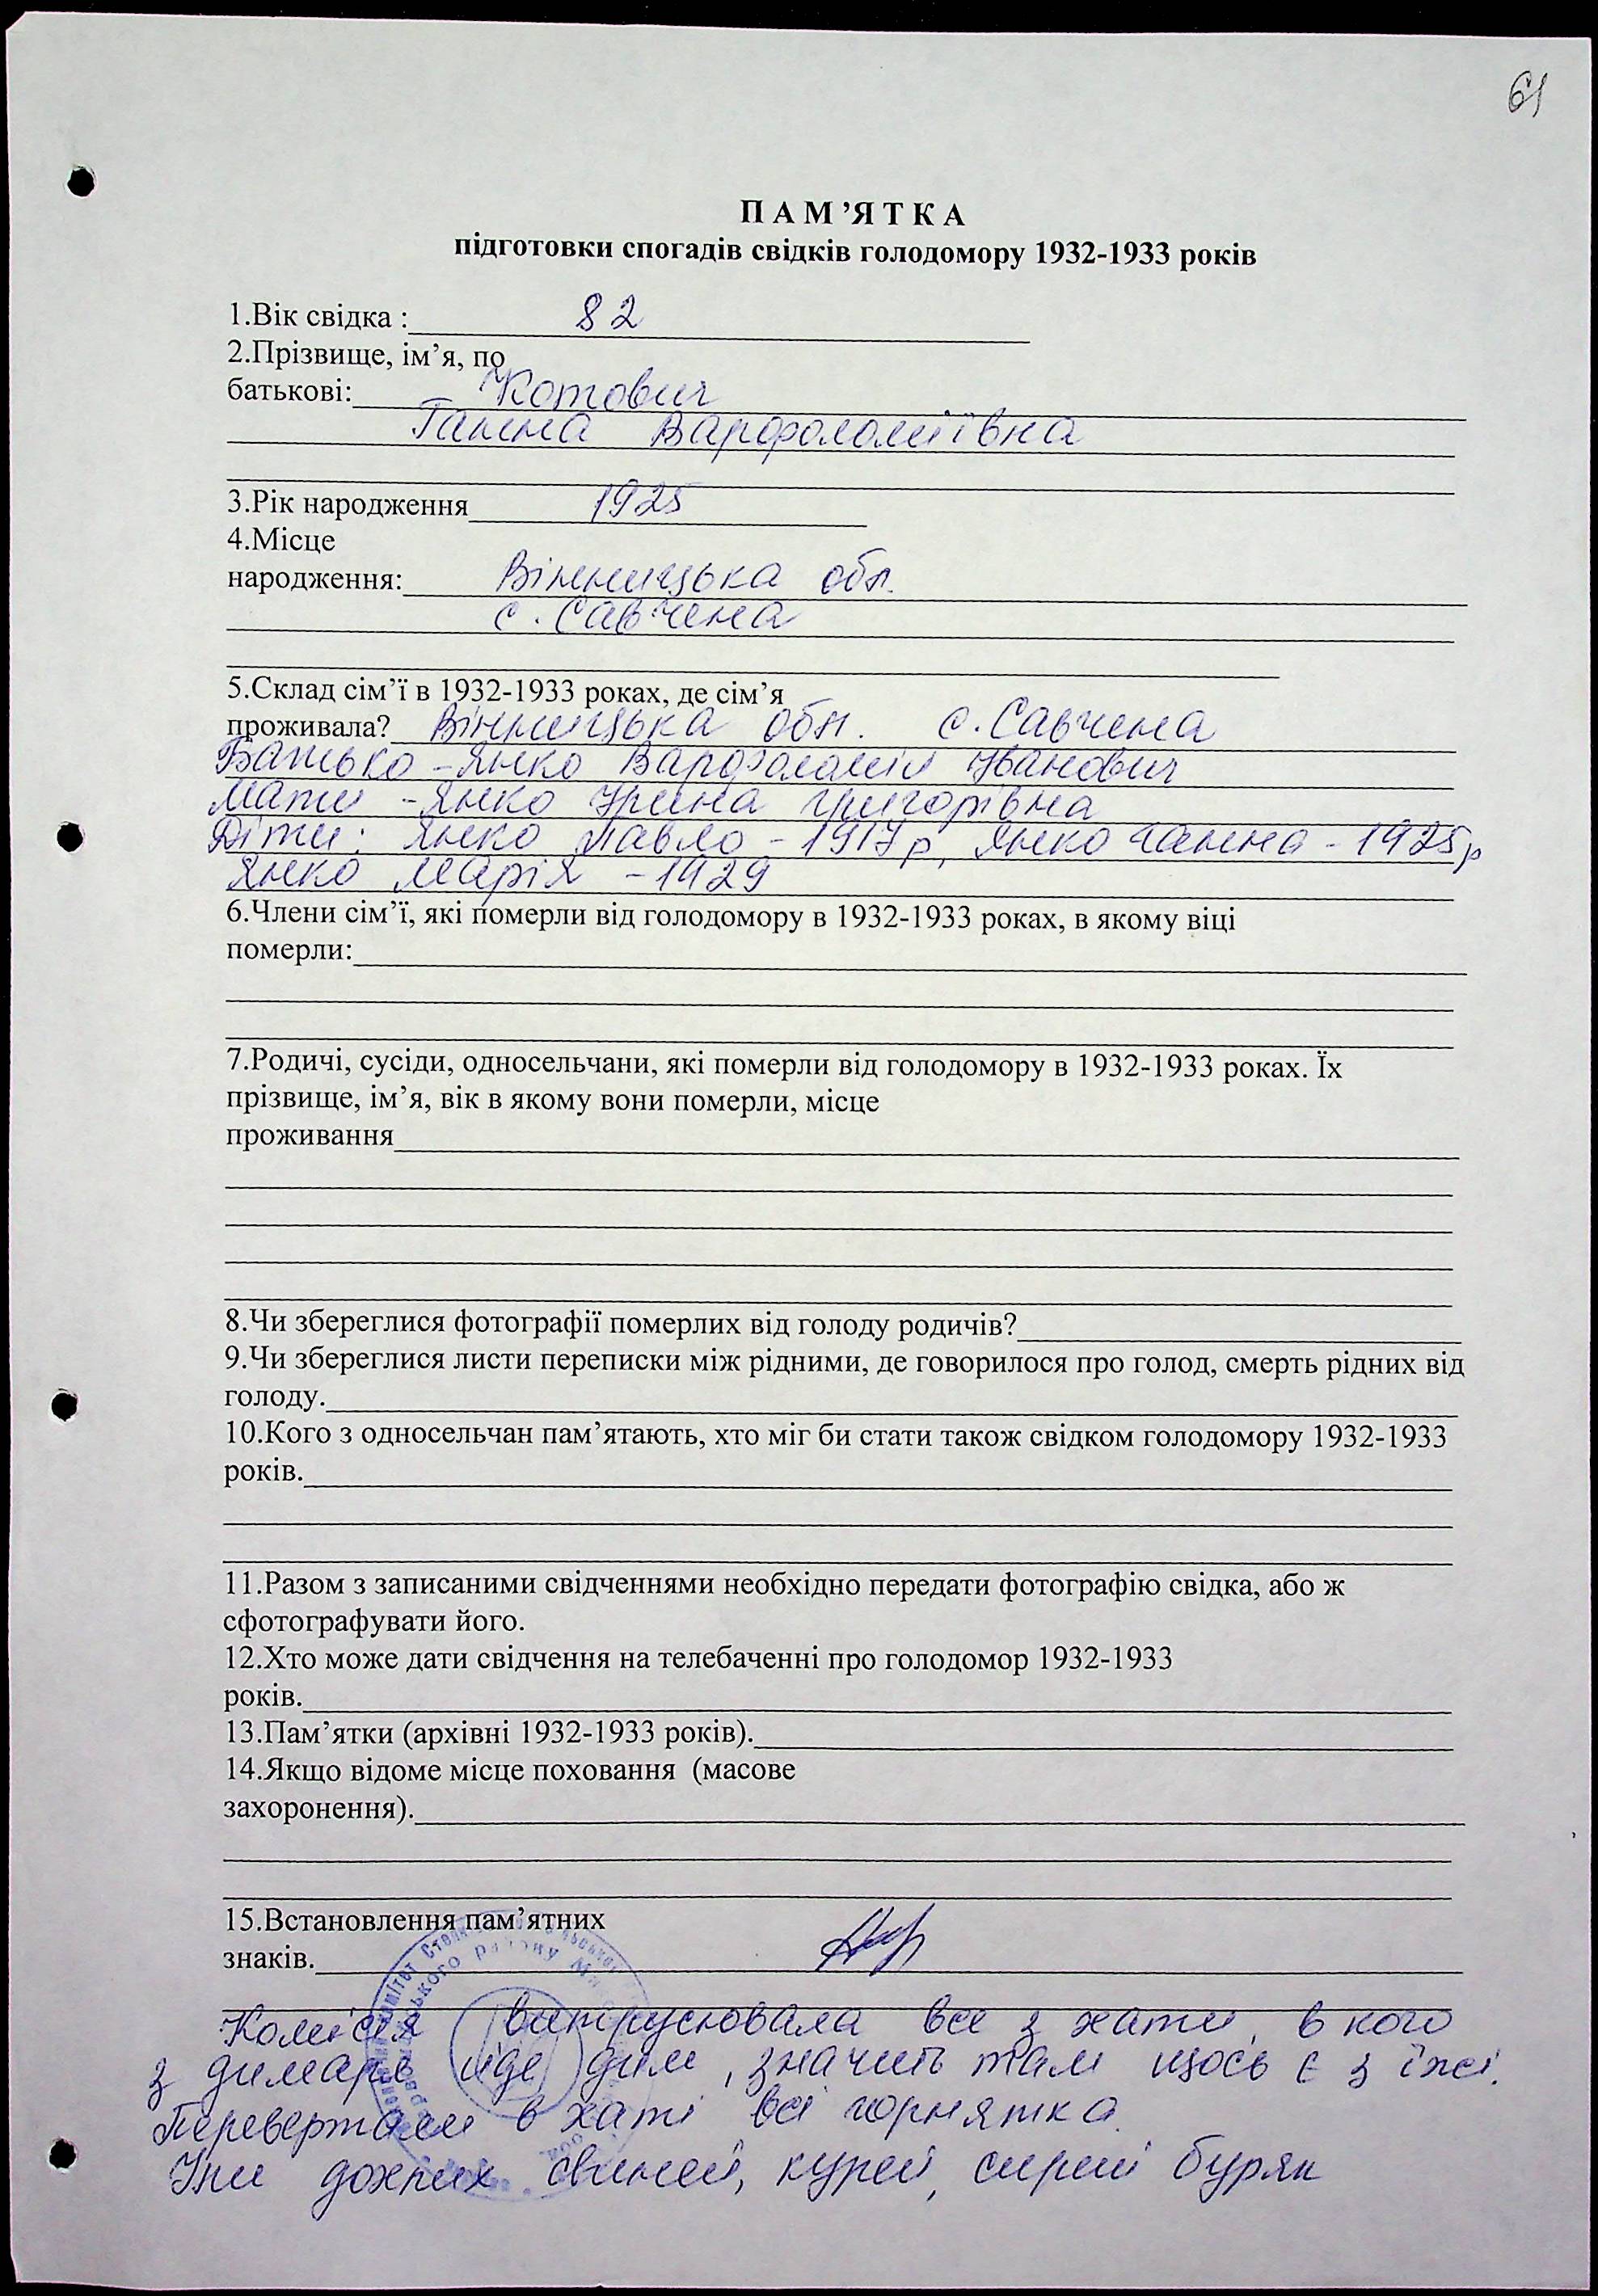 61
ПАМ’ЯТКА
підготовки спогадів свідків голодомору 1932-1933 років
1.Вік свідка : 82
2.Прізвище, ім’я, по
батькові: Котович
Ганна Варфоломіївна
3.Рік народження 1925
4.Місце
народження: Вінницька обл.
с. Савчена
5.Склад сім’ї в 1932-1933 роках, де сім’я
проживала? Вінницька обл. с. Савчена
Батько - Янко Варфоломій Іванович
Мати - Янко Ірина Григорівна
Діти: Янко Павло - 1917 р, Янко Ганна - 1925 р
Янко Марія - 1929
6.Члени сім’ї, які померли від голодомору в 1932-1933 роках, в якому віці
померли:
7.Родичі, сусіди, односельчани, які померли від голодомору в 1932-1933 роках. Їх
прізвище, ім’я, вік в якому вони померли, місце
проживання
8.Чи збереглися фотографії померлих від голоду родичів?
9.Чи збереглися листи переписки між рідними, де говорилося про голод, смерть рідних від
голоду.
10.Кого з односельчан пам’ятають, хто міг би стати також свідком голодомору 1932-1933
років.
11.Разом з записаними свідченнями необхідно передати фотографію свідка, або ж
сфотографувати його.
12.Хто може дати свідчення на телебаченні про голодомор 1932-1933
років.
13.Пам’ятки (архівні 1932-1933 років).
14.Якщо відоме місце поховання (масове
захоронення).
15.Встановлення пам’ятних
знаків.
Комісія витрусювала все з хати, в кого
з димаря йде дим, значить там щось є з їжі.
Перевертали в хаті всі горнятка.
Їли дохлих свиней, курей, сирий буряк